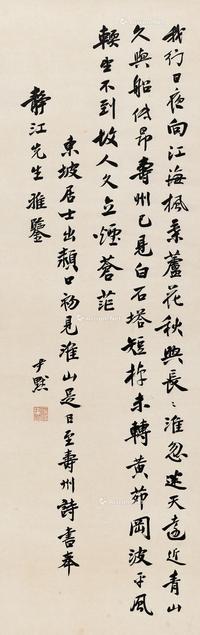 我行日夜向江海楓葉蘆花秋興長〻淮忽迷天遠近青山
久與船低昂壽州已見白石塔短棹未轉黃茆岡波平風
輭望不到故人久立煙蒼茫
東坡居士出潁口初見淮山是日至壽州詩書奉
靜江先生雅鑒
尹默